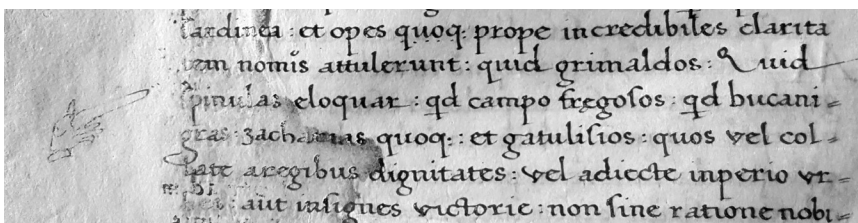 Sardinea : et opes quoq: prope incredibiles clarita
tem nomīs attulerunt : quid grimaldos : Quid
spinulas eloquar : qd campo fregosos : qd bucani=
gras : zacharias quoq: : et gatulisios : quos vel col=
late aregibus dignitates : vel adiecte inperio vr=
bes : aut insignes victorie : non sine ratione nobi=